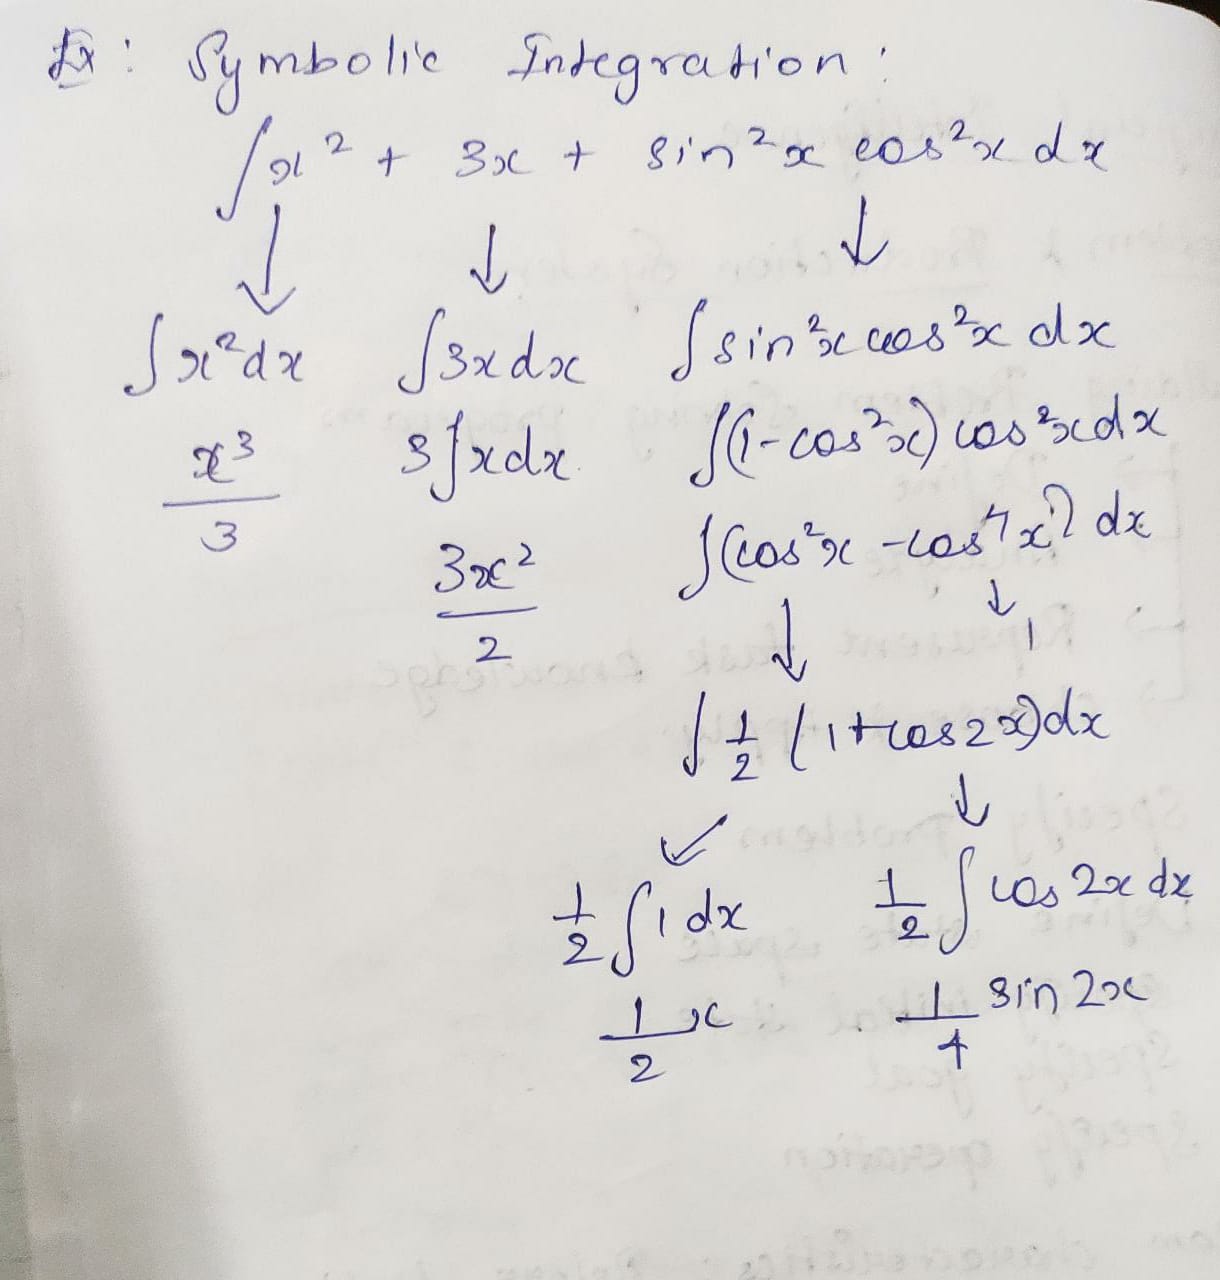 Ex: Symbolic Integration:
∫x² + 3x + sin²x cos²x dx
↓ ↓ ↓
∫x²dx ∫3xdx ∫sin²x cos²x dx
x³/3 3∫xdx ∫(1-cos²x) cos²xdx
3x²/2 ∫(cos²x - cos⁴x) dx
↓ ↓
∫ 1/2 (1+cos2x)dx
↙ ↓
1/2 ∫1 dx 1/2 ∫cos 2x dx
1/2 x 1/4 sin 2x